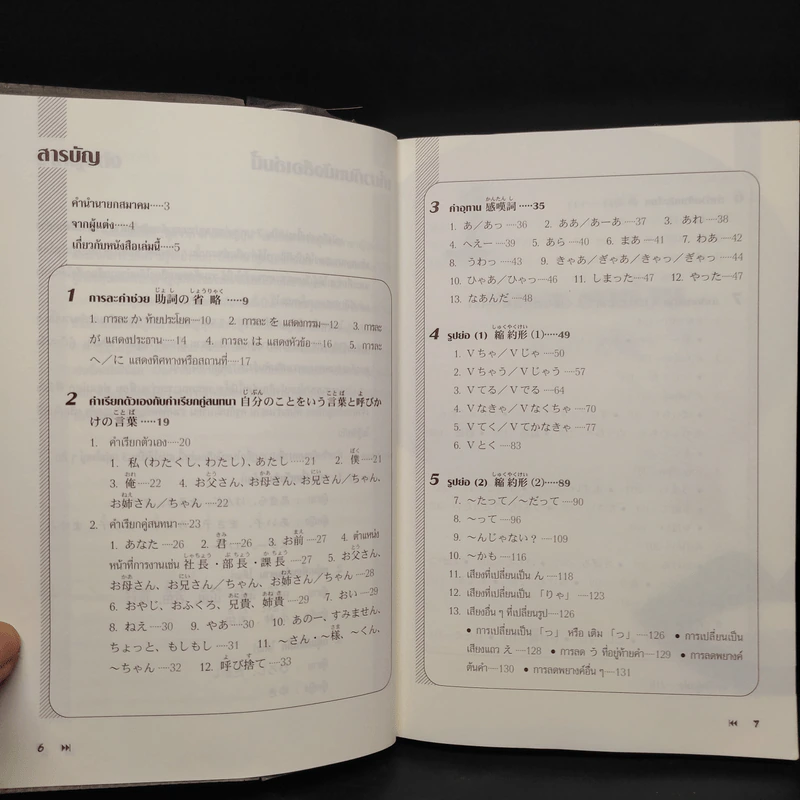 สารบัญ
คำนำนายกสมาคม·····3
จากผู้แต่ง·····4
เกี่ยวกับหนังสือเล่มนี้·····5
1 การละคำช่วย 助詞の省略 ·····9
じょし しょうりゃく
1. การละ か ท้ายประโยค—10 2. การละ を แสดงกรรม—12 3. การละ
が แสดงประธาน—14 4. การละ は แสดงหัวข้อ—16 5. การละ
へ／に แสดงทิศทางหรือสถานที่—17
2 คำเรียกตัวเองกับคำเรียกคู่สนทนา 自分のことをいう言葉と呼びか
じぶん ことば よ
けの言葉 ·····19
ことば
1. คำเรียกตัวเอง—20
1. 私（わたくし、わたし）、あたし—21 2. 僕—21
ぼく
3. 俺—22 4. お父さん、お母さん、お兄さん／ちゃん、
おれ とう かあ にい
お姉さん／ちゃん—22
ねえ
2. คำเรียกคู่สนทนา—23
1. あなた—26 2. 君—26 3. お前—27 4. ตำแหน่ง
きみ まえ
หน้าที่การงานเช่น 社長・部長・課長—27 5. お父さん、
しゃちょう ぶちょう かちょう とう
お母さん、お兄さん／ちゃん、お姉さん／ちゃん—28
かあ にい ねえ
6. おやじ、おふくろ、兄貴、姉貴—29 7. おい—29
あにき あねき
8. ねえ—30 9. やあ—30 10. あのー、すみません、
ちょっと、もしもし—31 11. ～さん・～様、～くん、
さま
～ちゃん—32 12. 呼び捨て—33
よ す
6
3 คำอุทาน 感嘆詞 ·····35
かんたんし
1. あ／あっ—36 2. ああ／あーあ—37 3. あれ—38
4. へえー—39 5. あら—40 6. まあ—41 7. わあ—42
8. うわっ—43 9. きゃあ／ぎゃあ／きゃっ／ぎゃっ—44
10. ひゃあ／ひゃっ—45 11. しまった—46 12. やった—47
13. なあんだ—48
4 รูปย่อ (1) 縮約形（1）·····49
しゅくやくけい
1. Vちゃ／Vじゃ—50
2. Vちゃう／Vじゃう—57
3. Vてる／Vでる—64
4. Vなきゃ／Vなくちゃ—70
5. Vてく／Vてかなきゃ—77
6. Vとく—83
5 รูปย่อ (2) 縮約形（2）·····89
しゅくやくけい
7. ～たって／～だって—90
8. ～って—96
9. ～んじゃない？—109
10. ～かも—116
11. เสียงที่เปลี่ยนเป็น ん—118
12. เสียงที่เปลี่ยนเป็น「りゃ」—123
13. เสียงอื่น ๆ ที่เปลี่ยนรูป—126
• การเปลี่ยนเป็น「っ」หรือ เติม「っ」—126 • การเปลี่ยนเป็น
เสียงแถว え—128 • การลด う ที่อยู่ท้ายคำ—129 • การลดพยางค์
ต้นคำ—130 • การลดพยางค์อื่น ๆ—131
7